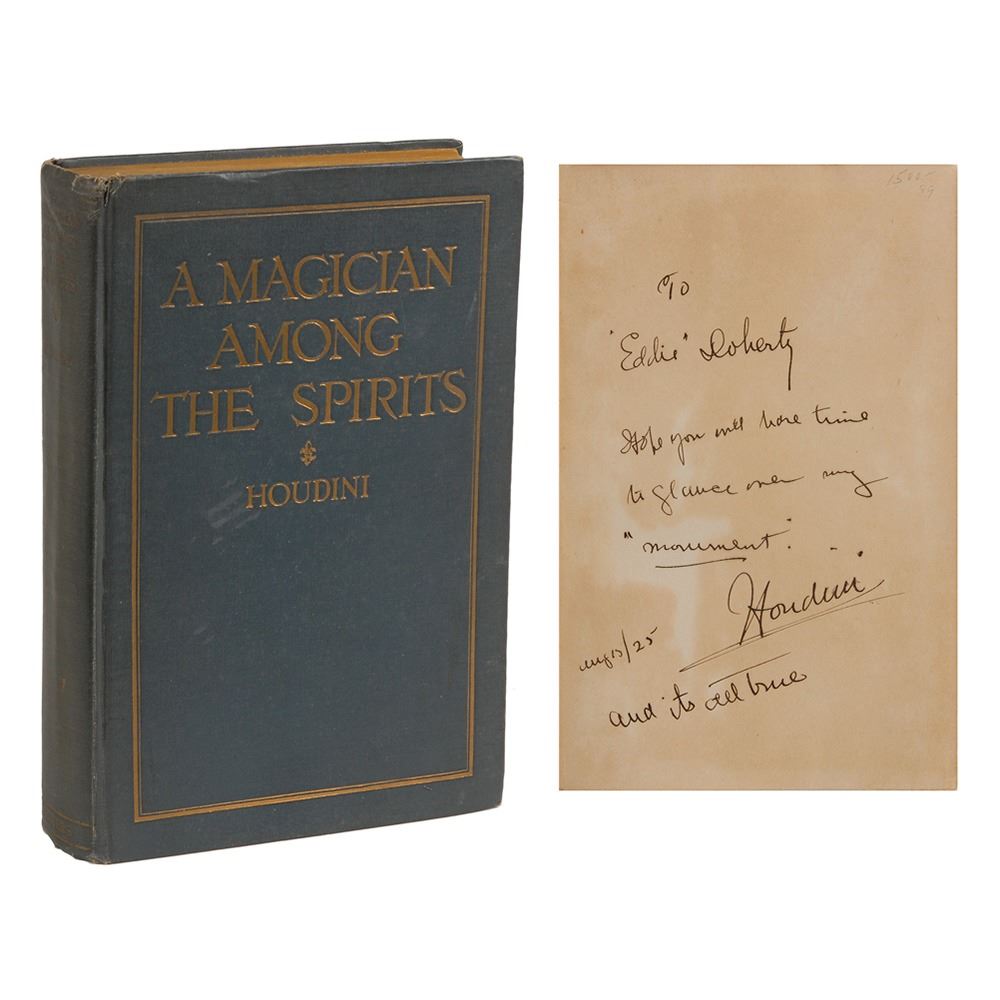 A MAGICIAN
AMONG
THE SPIRITS
HOUDINI
To
"Eddie" Doherty
Hope you will have time
to glance over my
"monument".
Houdini
Aug 13/25
and its all true